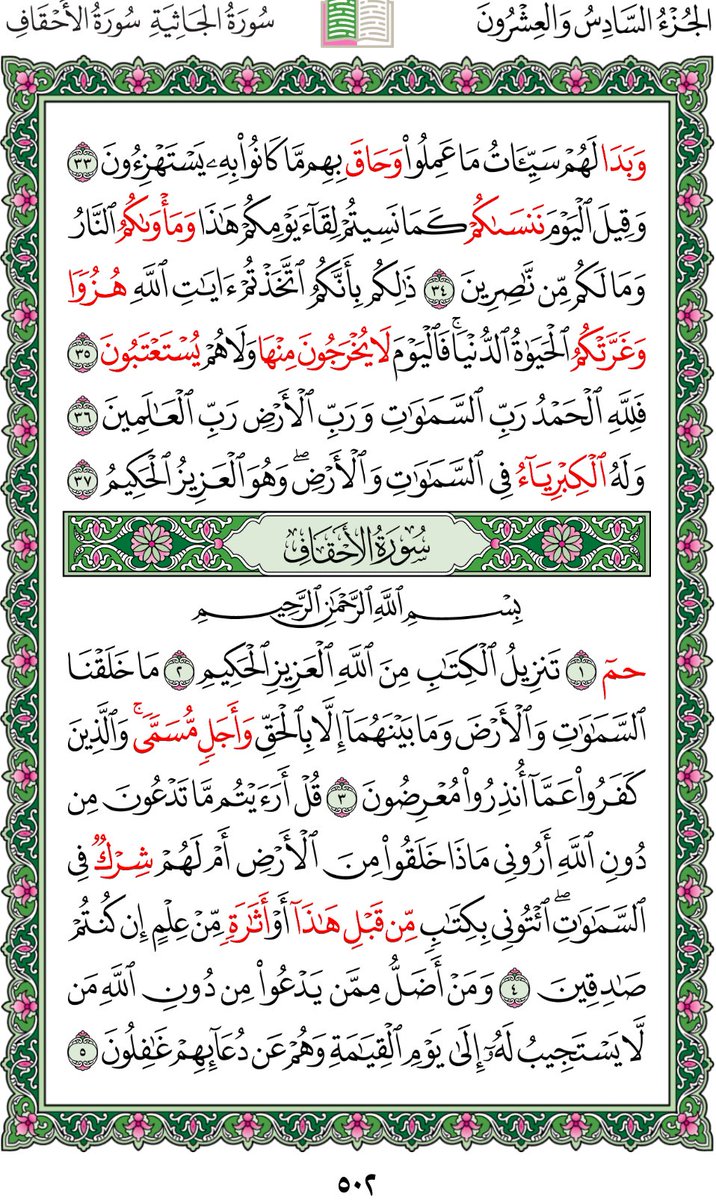 الجُزْءُ السَّادِسُ وَالْعِشْرُونَ سُورَةُ الجَاثِيَةِ سُورَةُ الأَحْقَافِ
وَبَدَا لَهُمْ سَيِّـَٔاتُ مَا عَمِلُوا۟ وَحَاقَ بِهِم مَّا كَانُوا۟ بِهِۦ يَسْتَهْزِءُونَ ٣٣
وَقِيلَ ٱلْيَوْمَ نَنسَىٰكُمْ كَمَا نَسِيتُمْ لِقَآءَ يَوْمِكُمْ هَـٰذَا وَمَأْوَىٰكُمُ ٱلنَّارُ
وَمَا لَكُم مِّن نَّـٰصِرِينَ ٣٤ ذَٰلِكُم بِأَنَّكُمُ ٱتَّخَذْتُمْ ءَايَـٰتِ ٱللَّهِ هُزُوًا
وَغَرَّتْكُمُ ٱلْحَيَوٰةُ ٱلدُّنْيَا ۚ فَٱلْيَوْمَ لَا يُخْرَجُونَ مِنْهَا وَلَا هُمْ يُسْتَعْتَبُونَ ٣٥
فَلِلَّهِ ٱلْحَمْدُ رَبِّ ٱلسَّمَـٰوَٰتِ وَرَبِّ ٱلْأَرْضِ رَبِّ ٱلْعَـٰلَمِينَ ٣٦
وَلَهُ ٱلْكِبْرِيَآءُ فِى ٱلسَّمَـٰوَٰتِ وَٱلْأَرْضِ ۖ وَهُوَ ٱلْعَزِيزُ ٱلْحَكِيمُ ٣٧
سُورَةُ الأَحْقَافِ
بِسْمِ ٱللَّهِ ٱلرَّحْمَـٰنِ ٱلرَّحِيمِ
حمٓ ١ تَنزِيلُ ٱلْكِتَـٰبِ مِنَ ٱللَّهِ ٱلْعَزِيزِ ٱلْحَكِيمِ ٢ مَا خَلَقْنَا
ٱلسَّمَـٰوَٰتِ وَٱلْأَرْضَ وَمَا بَيْنَهُمَآ إِلَّا بِٱلْحَقِّ وَأَجَلٍ مُّسَمًّى ۚ وَٱلَّذِينَ
كَفَرُوا۟ عَمَّآ أُنذِرُوا۟ مُعْرِضُونَ ٣ قُلْ أَرَءَيْتُم مَّا تَدْعُونَ مِن
دُونِ ٱللَّهِ أَرُونِى مَاذَا خَلَقُوا۟ مِنَ ٱلْأَرْضِ أَمْ لَهُمْ شِرْكٌ فِى
ٱلسَّمَـٰوَٰتِ ۖ ٱئْتُونِى بِكِتَـٰبٍ مِّن قَبْلِ هَـٰذَآ أَوْ أَثَـٰرَةٍ مِّنْ عِلْمٍ إِن كُنتُمْ
صَـٰدِقِينَ ٤ وَمَنْ أَضَلُّ مِمَّن يَدْعُوا۟ مِن دُونِ ٱللَّهِ مَن
لَّا يَسْتَجِيبُ لَهُۥٓ إِلَىٰ يَوْمِ ٱلْقِيَـٰمَةِ وَهُمْ عَن دُعَآئِهِمْ غَـٰفِلُونَ ٥
٥٠٢